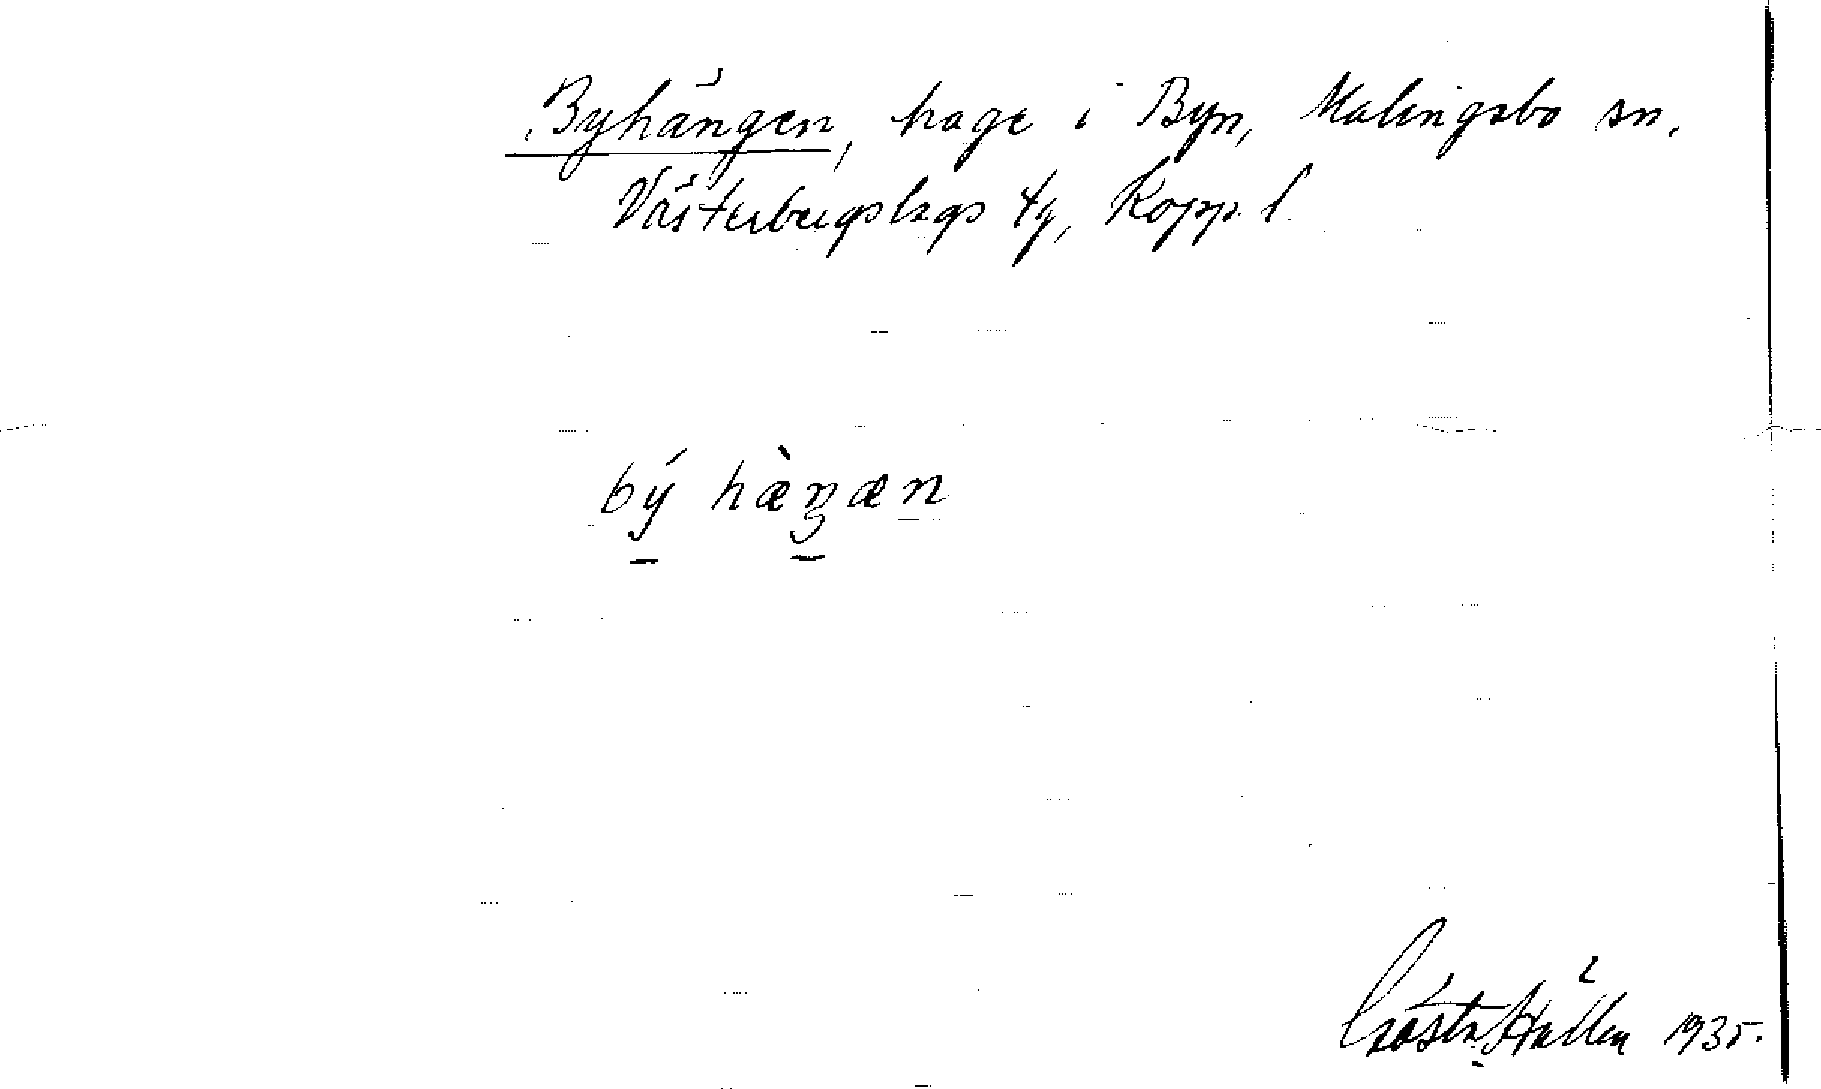 Byhängen, hage i Byn, Malingsbo sn.
Västerbergslags tg, Kopp. l.
bý hæ̀ŋæn
Gösta Hällen 1935.